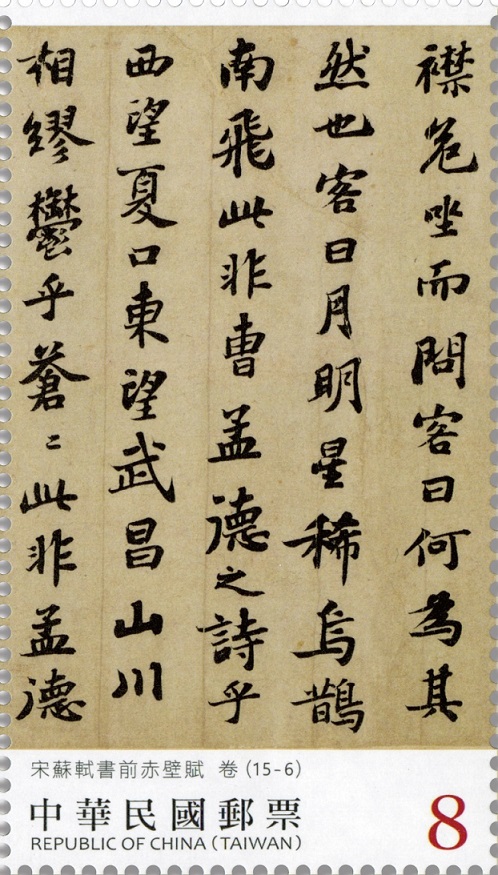 襟危坐而問客曰何為其
然也客曰月明星稀烏鵲
南飛此非曹孟德之詩乎
西望夏口東望武昌山川
相繆鬱乎蒼〻此非孟德
宋蘇軾書前赤壁賦 卷 (15-6)
中華民國郵票
REPUBLIC OF CHINA (TAIWAN)
8